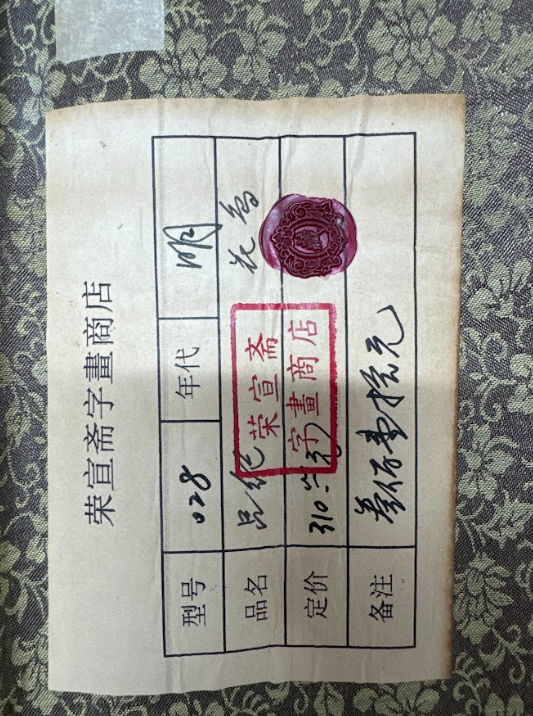 荣宣斋字畫商店
型号 028 年代 明
品名 吕纪 花鸟
定价 310.00元
备注 叁佰壹拾元
荣宣斋
字畫商店